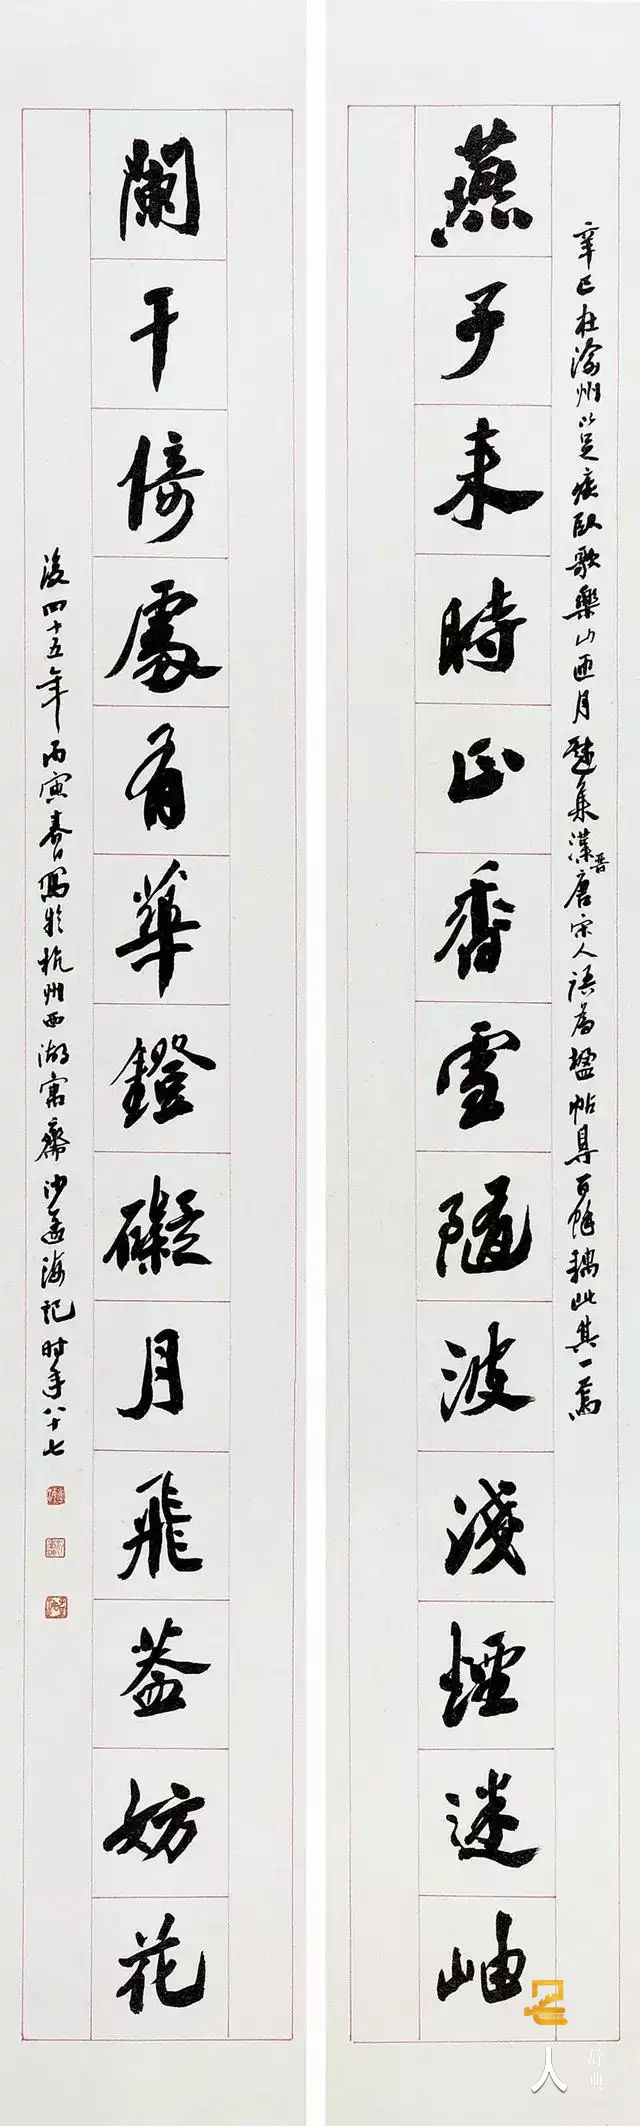 辛巳在渝州以足疾臥歌樂山匝月觕集漢晉唐宋人語為楹帖具百餘耦此其一焉
燕子來時正香雪隨波淺煙迷岫
闌干倚處有華鐙礙月飛蓋妨花
後四十五年丙寅春日寫於杭州西湖寓齋沙孟海記時年八十七
名人
辭典